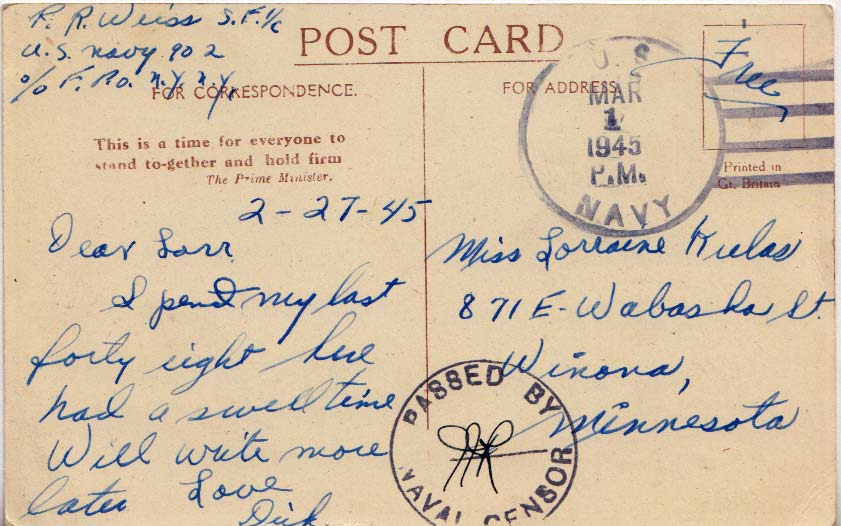 R. R. Weiss S.F. 1/c
U.S. Navy 902
c/o F.P.O. N.Y. N.Y.
POST CARD
FOR CORRESPONDENCE.
FOR ADDRESS
Free
U.S.
MAR
1
1945
P.M.
NAVY
Printed in
Gt. Britain
This is a time for everyone to
stand to-gether and hold firm
The Prime Minister.
2-27-45
Dear Lorr
I spend my last
forty eight here
had a swell time
Will write more
later Love
Dick
Miss Lorraine Kulas
871 E-Wabasha St.
Winona,
Minnesota
PASSED BY
NAVAL CENSOR